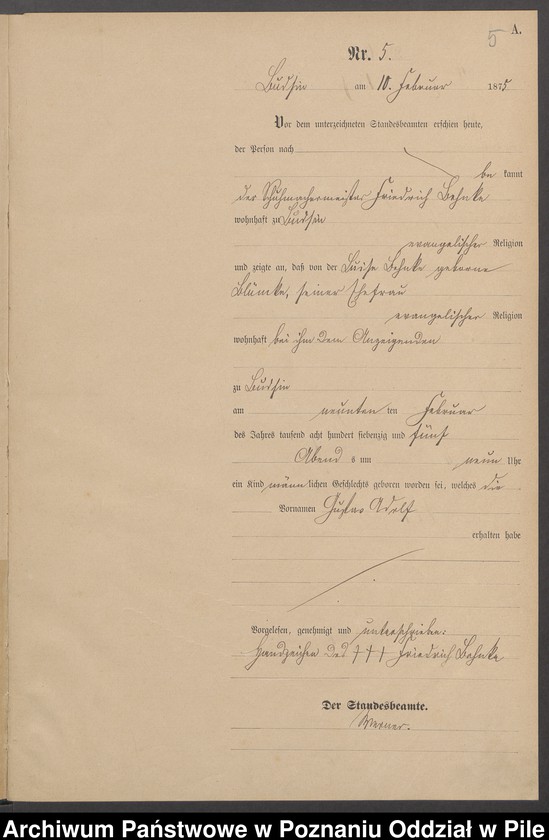 5 A.
Nr. 5.
Budsin am 10. Februar 1875
Vor dem unterzeichneten Standesbeamten erschien heute,
der Person nach
be kannt
der Schuhmachermeister Friedrich Behnke
wohnhaft zu Budsin
evangelischer Religion
und zeigte an, daß von der Luise Behnke geborne
Blümke, seiner Ehefrau
evangelischer Religion
wohnhaft bei ihm dem Anzeigenden
zu Budsin
am neunten ten Februar
des Jahres tausend acht hundert siebenzig und fünf
Abend s um neun Uhr
ein Kind männlichen Geschlechts geboren worden sei, welches die
Vornamen Gustav Adolf
erhalten habe
Vorgelesen, genehmigt und unterschrieben:
Handzeichen des +++ Friedrich Behnke
Der Standesbeamte.
Werner.
Archiwum Państwowe w Poznaniu Oddział w Pile